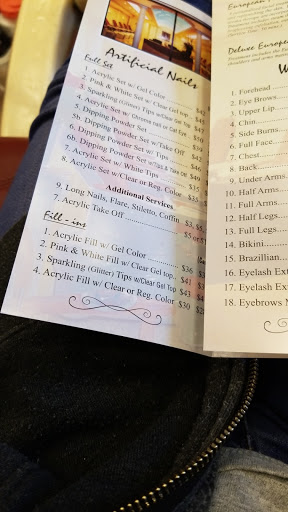 Artificial Nails
Full Set
1. Acrylic Set w/ Gel Color
2. Pink & White Set w/ Clear Gel top
3. Sparkling (Glitter) Tips w/Clear Gel Top
4. Acrylic Set w/ Chrome
5. Dipping Powder Set
5b. Dipping Powder Set w/Take Off
6. Dipping Powder Set w/ Tips
6b. Dipping Powder Set w/Tips & Take Off
7. Acrylic Set w/ White Tips
8. Acrylic Set w/ Clear or Reg. Color $35
Additional Services
9. Long Nails, Flare, Stiletto, Coffin $3, $5,
7. Acrylic Take Off
Fill - ins
1. Acrylic Fill w/ Gel Color $36
2. Pink & White Fill w/ Clear Gel top
3. Sparkling (Glitter) Tips w/Clear Gel Top $43
4. Acrylic Fill w/ Clear or Reg. Color $30
European
Deluxe Europe
W
1. Forehead
2. Eye Brows
3. Upper Lip
4. Chin
5. Side Burns
6. Full Face
7. Chest
8. Back
9. Under Arms
10. Half Arms
11. Full Arms
12. Half Legs
13. Full Legs
14. Bikini
15. Brazillian
16. Eyelash Ex
17. Eyelash Ex
18. Eyebrows M